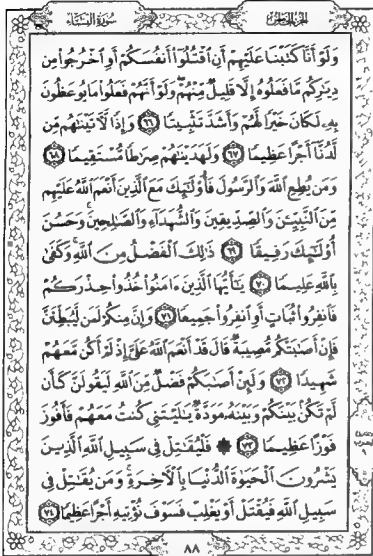 سورة النساء
الجزء الخامس
وَلَوْ أَنَّا كَتَبْنَا عَلَيْهِمْ أَنِ ٱقْتُلُوٓا۟ أَنفُسَكُمْ أَوِ ٱخْرُجُوا۟ مِن
دِيَٰرِكُم مَّا فَعَلُوهُ إِلَّا قَلِيلٌ مِّنْهُمْ وَلَوْ أَنَّهُمْ فَعَلُوا۟ مَا يُوعَظُونَ
بِهِۦ لَكَانَ خَيْرًا لَّهُمْ وَأَشَدَّ تَثْبِيتًا ٦٦ وَإِذًا لَّءَاتَيْنَٰهُم مِّن
لَّدُنَّآ أَجْرًا عَظِيمًا ٦٧ وَلَهَدَيْنَٰهُمْ صِرَٰطًا مُّسْتَقِيمًا ٦٨
وَمَن يُطِعِ ٱللَّهَ وَٱلرَّسُولَ فَأُو۟لَٰٓئِكَ مَعَ ٱلَّذِينَ أَنْعَمَ ٱللَّهُ عَلَيْهِم
مِّنَ ٱلنَّبِيِّـۧنَ وَٱلصِّدِّيقِينَ وَٱلشُّهَدَآءِ وَٱلصَّٰلِحِينَ ۚ وَحَسُنَ
أُو۟لَٰٓئِكَ رَفِيقًا ٦٩ ذَٰلِكَ ٱلْفَضْلُ مِنَ ٱللَّهِ ۚ وَكَفَىٰ
بِٱللَّهِ عَلِيمًا ٧٠ يَٰٓأَيُّهَا ٱلَّذِينَ ءَامَنُوا۟ خُذُوا۟ حِذْرَكُمْ
فَٱنفِرُوا۟ ثُبَاتٍ أَوِ ٱنفِرُوا۟ جَمِيعًا ٧١ وَإِنَّ مِنكُمْ لَمَن لَّيُبَطِّئَنَّ
فَإِنْ أَصَٰبَتْكُم مُّصِيبَةٌ قَالَ قَدْ أَنْعَمَ ٱللَّهُ عَلَىَّ إِذْ لَمْ أَكُن مَّعَهُمْ
شَهِيدًا ٧٢ وَلَئِنْ أَصَٰبَكُمْ فَضْلٌ مِّنَ ٱللَّهِ لَيَقُولَنَّ كَأَن
لَّمْ تَكُنۢ بَيْنَكُمْ وَبَيْنَهُۥ مَوَدَّةٌ يَٰلَيْتَنِى كُنتُ مَعَهُمْ فَأَفُوزَ
فَوْزًا عَظِيمًا ٧٣ ۞ فَلْيُقَٰتِلْ فِى سَبِيلِ ٱللَّهِ ٱلَّذِينَ
يَشْرُونَ ٱلْحَيَوٰةَ ٱلدُّنْيَا بِٱلْءَاخِرَةِ ۚ وَمَن يُقَٰتِلْ فِى
سَبِيلِ ٱللَّهِ فَيُقْتَلْ أَوْ يَغْلِبْ فَسَوْفَ نُؤْتِيهِ أَجْرًا عَظِيمًا ٧٤
٨٨